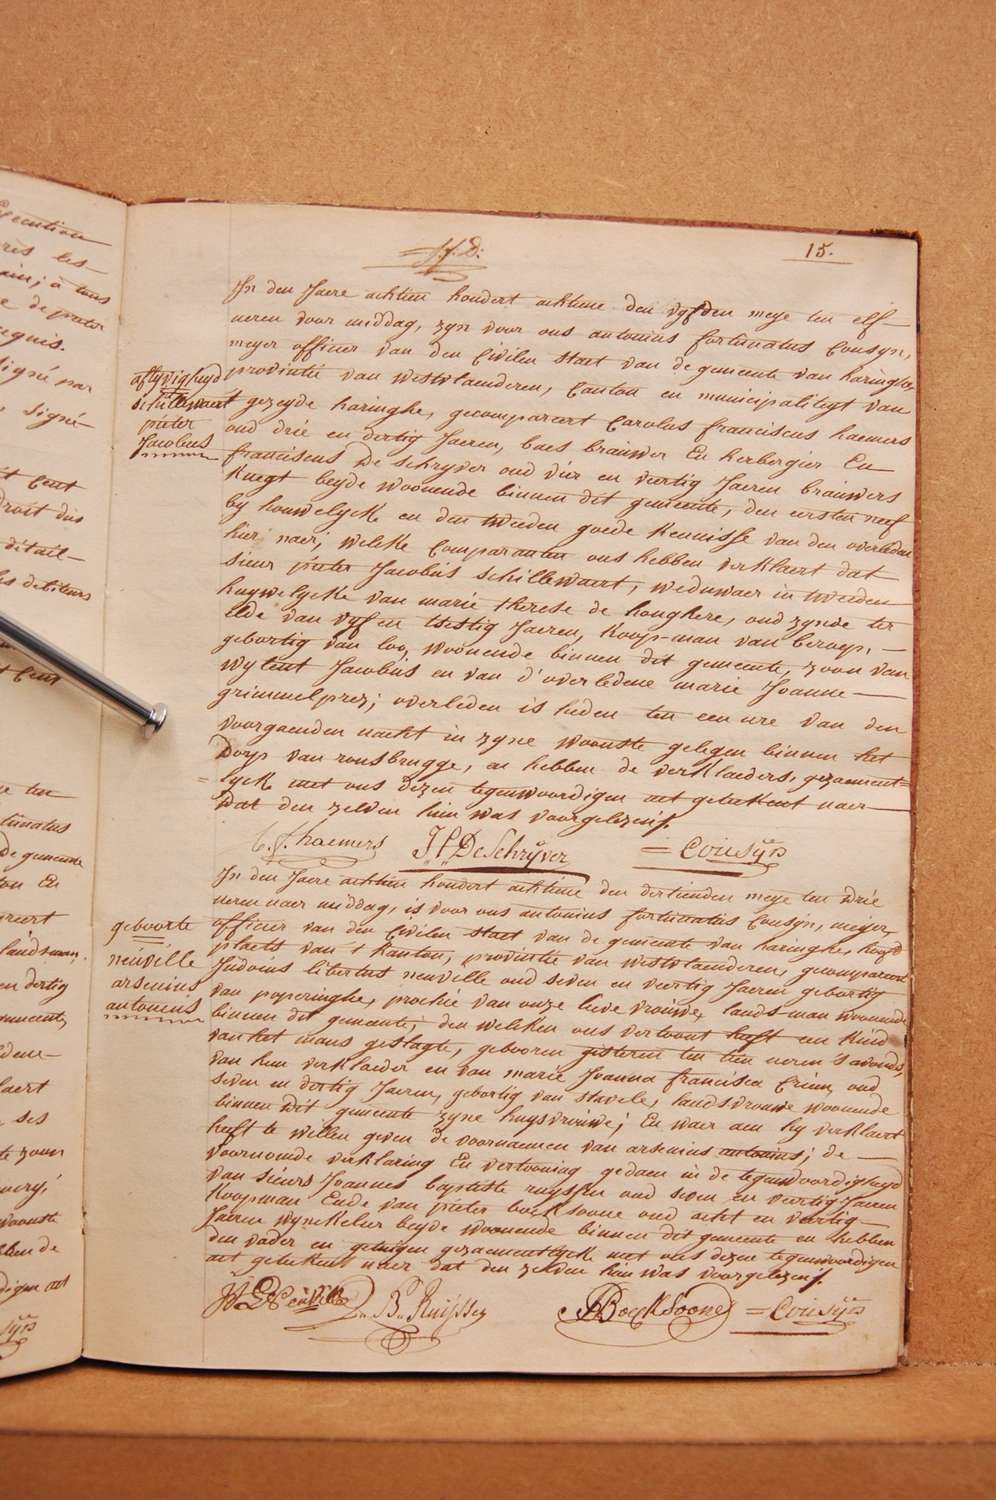 15.
In den Jaere achtien hondert achtiene den vyfden meye ten elf
ueren voor middag, zyn voor ons antonius fortunatus Cousyn,
meyer officier van den Civilen staet van de gemeente van haringhe
provintie van westvlaenderen, Canton en municipalityt van
gezeyde haringhe, gecompareert Carolus franciscus haemers
oud drie en dertig Jaeren, baes brauwer En herbergier En
franciscus De schryver oud vier en veertig Jaeren brauwers
Knegt beyde woonende binnen dit gemeente, den eersten neef
by houwelycke en den tweeden goede Kennisse van den overleden
hier naer, welcke Comparanten ons hebben verklaert dat
sieur pieter Jacobus schillewaert, weduwaer in tweeden
huywelycke van marie therese de honghere, oud zynde ter
elde van vyf en tsestig Jaeren, Koop-man van beroep,
gebortig van loo, woonende binnen dit gemeente, zoon van
wylent Jacobus en van d'overledene marie Joanne
grimmelprez; overleden is heden ten een ure van den
voorgaenden nacht in zyne woonste gelegen binnen het
Dorp van rousbrugge, en hebben de verklaeders, gezaement=
=lyck met ons dezen tegenwoordigen act geteekent naer
dat den zelven hun was voorgelezen.
aflyvigheyd
schillewaert
pieter
Jacobus
C. f. haemers J. f. De Schryver = Cousyn
In den Jaere achtien hondert achtiene den dertienden meye ten drie
ueren naer middag, is voor ons antonius fortunatus Cousyn, meyer,
officier van den Civilen staet van de gemeente van haringhe, hoofd
plaets van 't kanton, provintie van westvlaenderen, gecompareert
Judocus libertus neuville oud seven en veertig Jaeren gebortig
van poperinghe, prochie van onze lieve vrouwe, lands-man woonende
binnen dit gemeente, den welken ons vertoont heeft een kind
van het mans geslagte, gebooren gisteren ten tien ueren 's avonds,
van hem verklaeder en van marie Joanna francisca Crinu, oud
seven en dertig Jaeren, gebortig van stavele, landsvrouwe woonende
binnen Dit gemeente zyne huysvrouwe; En waer aen hy verklaert
heeft te willen geven de voornaemen van arsenius antonius; de
voornoemde verklaring En vertooning gedaen in de tegenwoordigheyd
van sieurs Joannes baptiste ruyssen oud seven en veertig Jaeren
Koopman Ende van pieter boeksoone oud acht en veertig
Jaeren wynckelier beyde woonende binnen dit gemeente en hebben
den vader en getuigen gezaementlyck met ons dezen tegenwoordigen
act geteekent naer dat den zelven hun was voorgelezen.
geboorte
neuville
arsenius
antonius
J. L. Neuville J. B. Ruijssen P Boeksoone = Cousyn